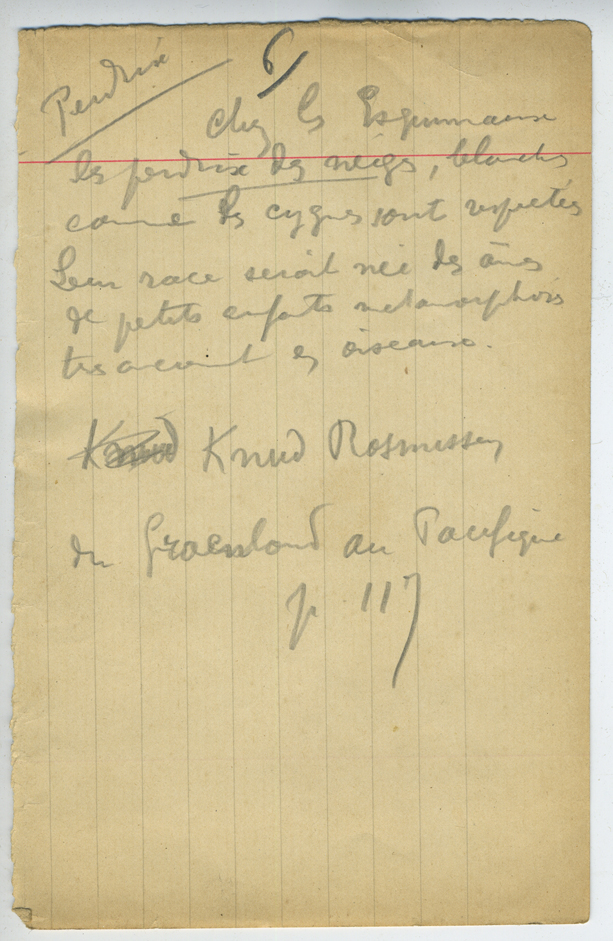 Perdrix
6
Chez les Esquimaux
les perdrix des neiges, blanches
comme des cygnes sont respectées
Leur race serait née des âmes
de petits enfants métamorphosés
en oiseaux.
Knud Knud Rasmussen
du Groenland au Pacifique
p 117